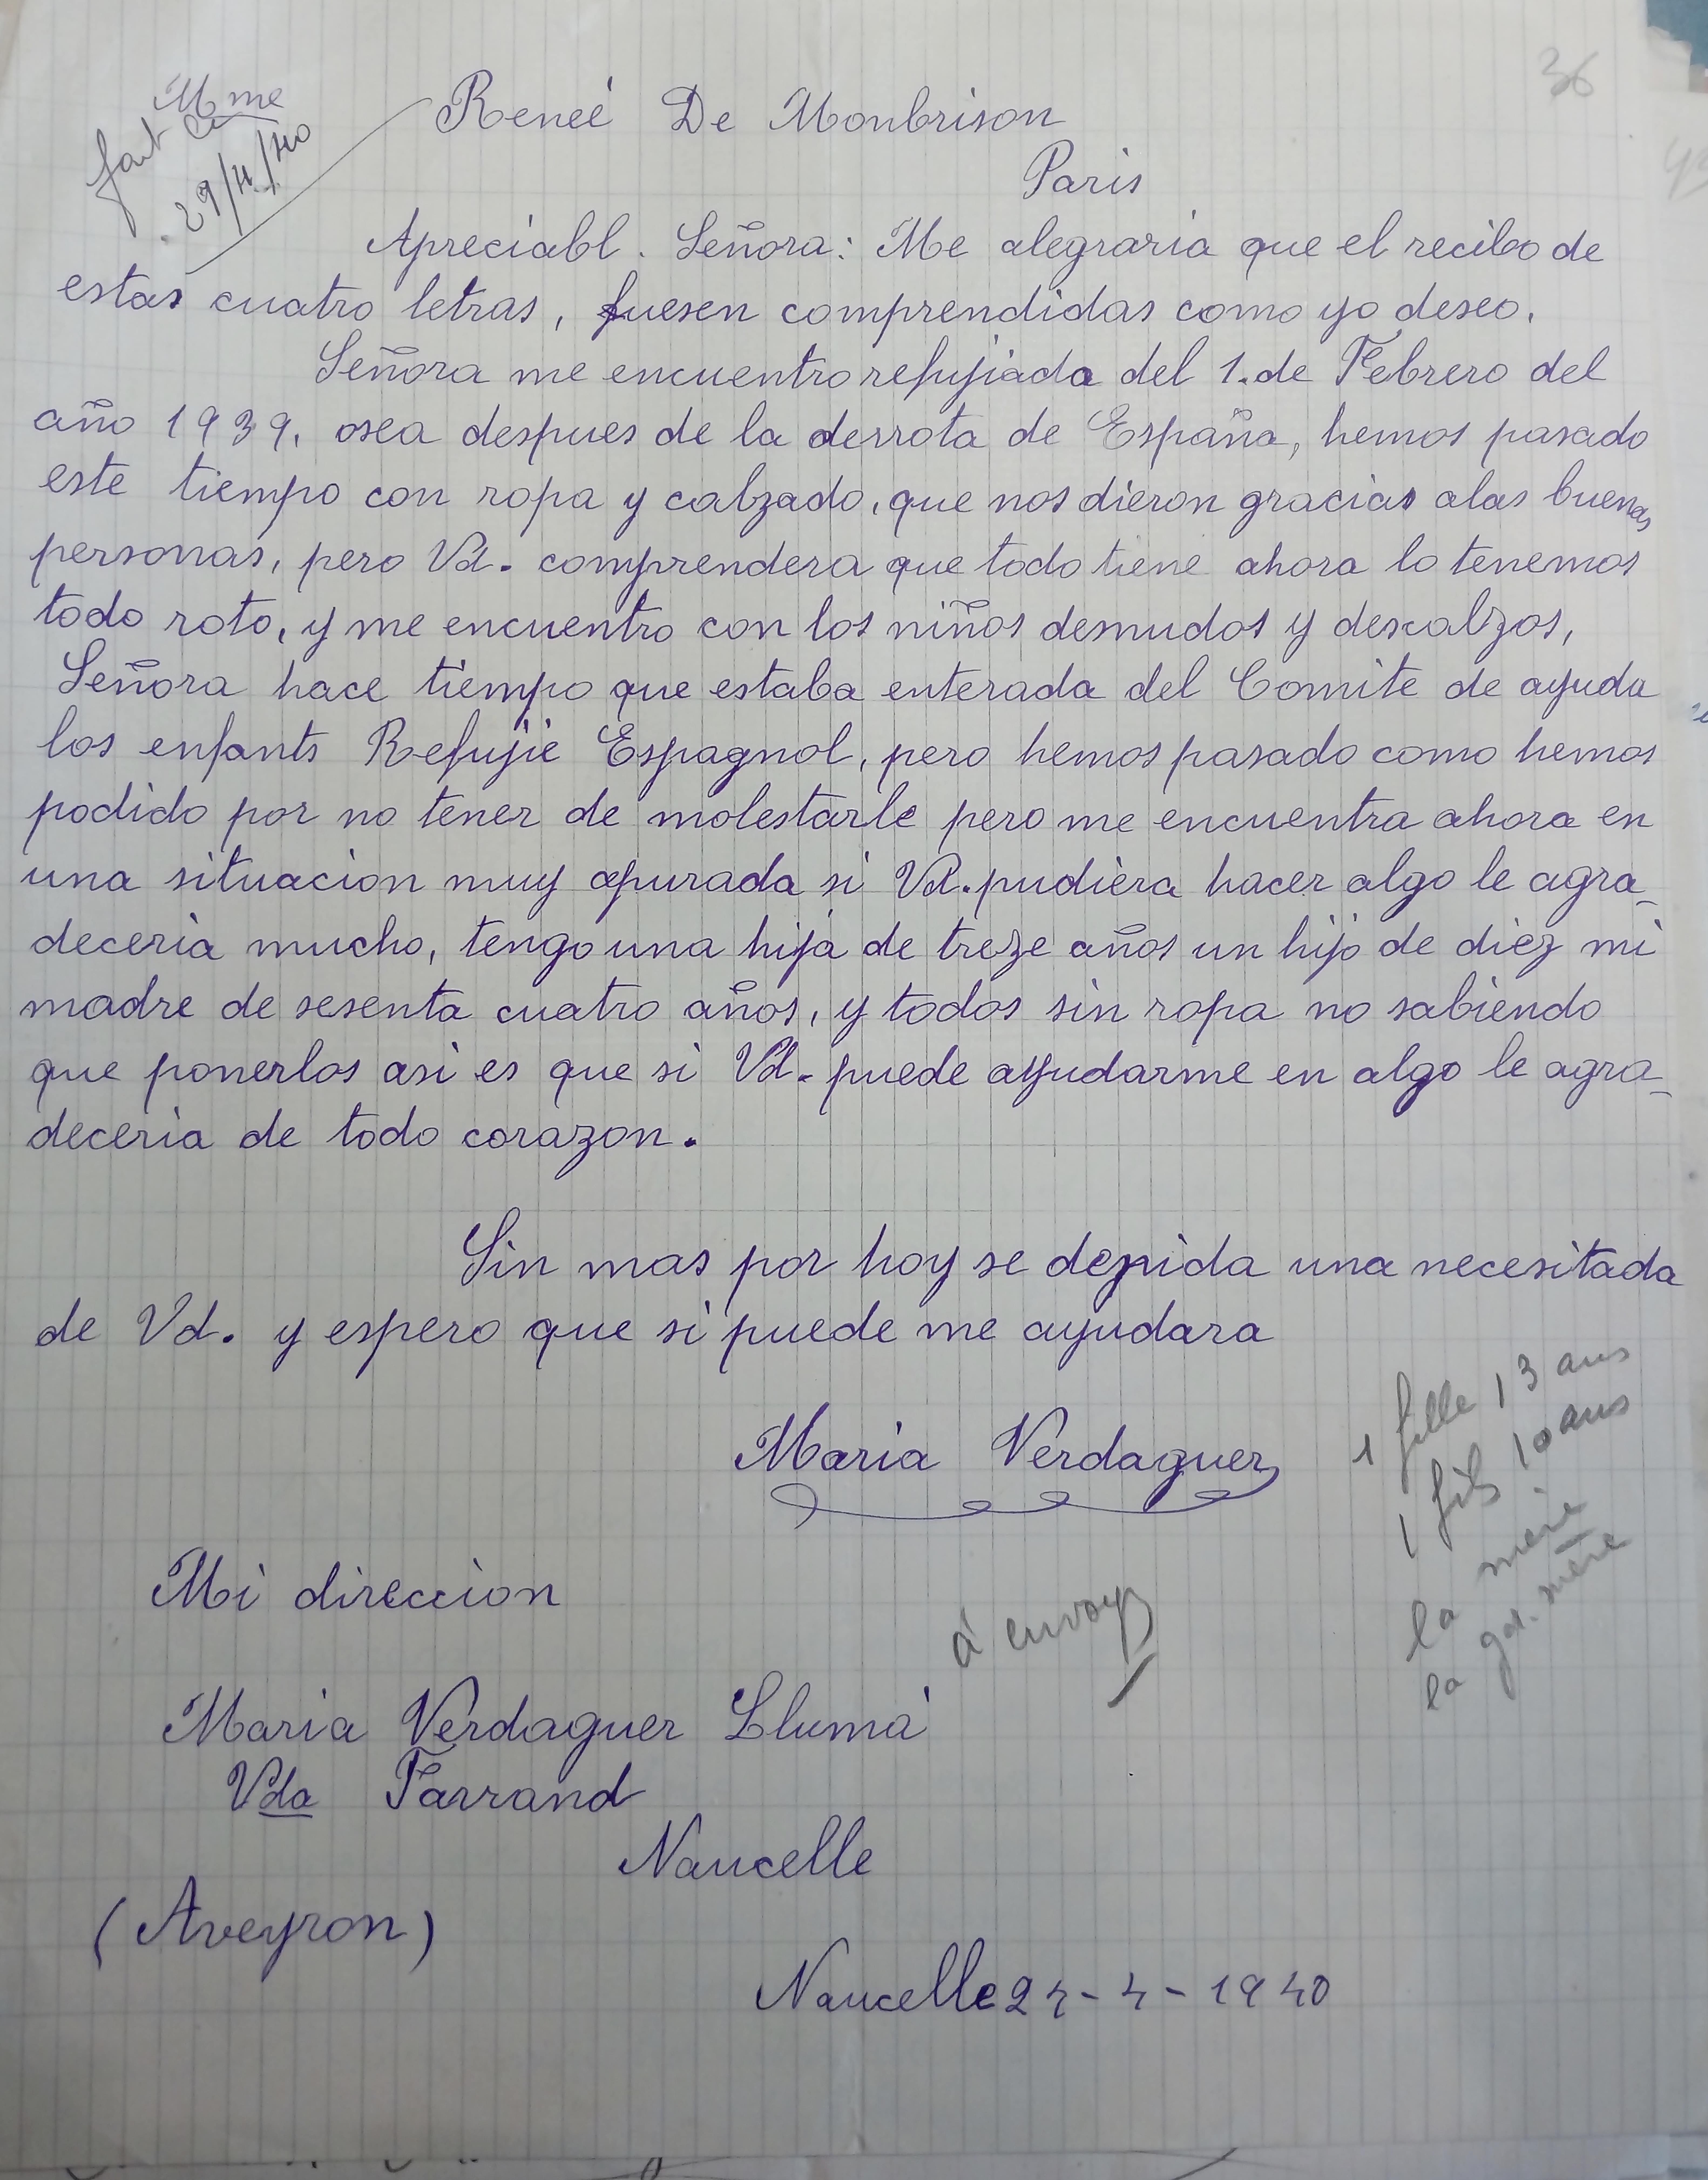 36
Mme
fait le
29/4/40
Reneé De Monbrison
Paris
Apreciabl. Señora: Me alegraria que el recibo de
estas cuatro letras, fuesen comprendidas como yo deseo.
Señora me encuentro refujiada del 1. de Febrero del
año 1939, osea despues de la derrota de España, hemos pasado
este tiempo con ropa y calzado, que nos dieron gracias alas buenas
personas, pero Vd. comprendera que todo tiene ahora lo tenemos
todo roto, y me encuentro con los niños desnudos y descalzos,
Señora hace tiempo que estaba enterada del Comite de ayuda
los enfants Refujie Espagnol, pero hemos pasado como hemos
podido por no tener de molestarle pero me encuentra ahora en
una situacion muy apurada si Vd. pudiera hacer algo le agra_
deceria mucho, tengo una hija de treze años un hijo de diez mi
madre de sesenta cuatro años, y todos sin ropa no sabiendo
que ponerlos asi es que si Vd. puede ayudarme en algo le agra_
deceria de todo corazon.
Sin mas por hoy se depida una necesitada
de Vd. y espero que si puede me ayudara
Maria Verdaguer
1 fille 13 ans
1 fils 10 ans
la mère
la gd. mère
Mi direccion
à envoyer
Maria Verdaguer Llumá
Vda Farrand
Naucelle
(Aveyron)
Naucelle 24-4-1940